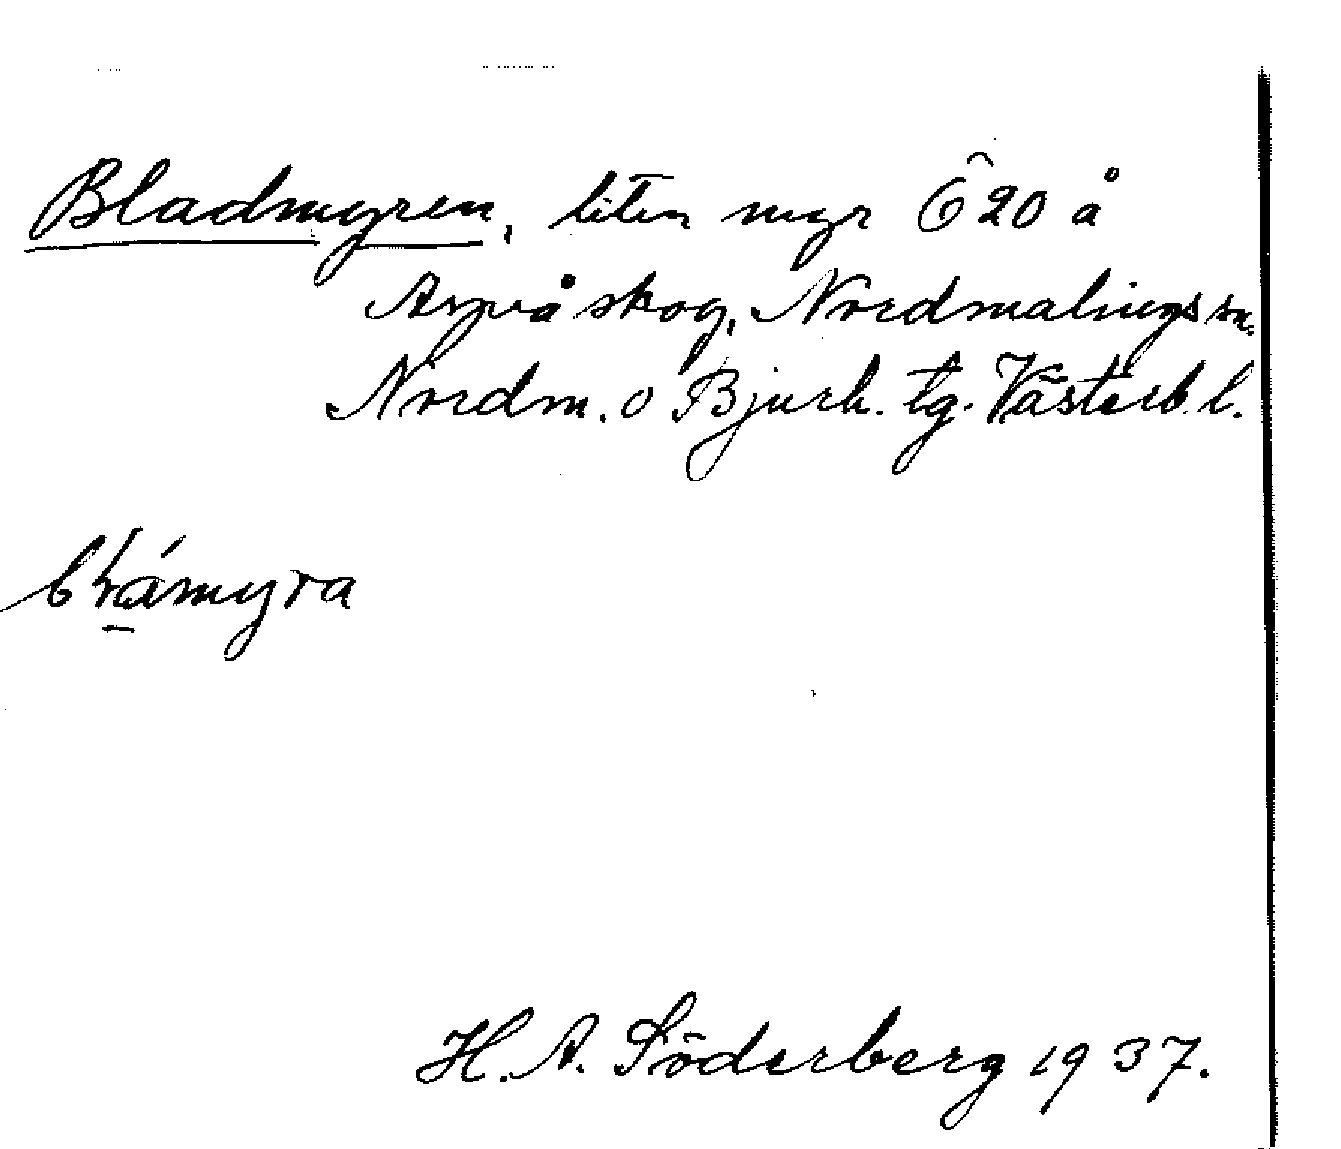 Bladmyren, liten myr Ö 20 å
Arnvå skog, Nordmalings sn.
Nordm. o Bjurh. tg. Västerb. l.
H. A. Söderberg 1937.